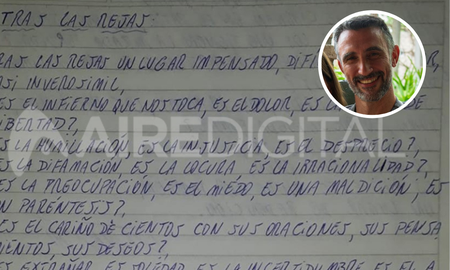 TRAS LAS REJAS
RAS LAS REJAS UN LUGAR IMPENSADO, DIFI R,
ASI INVEROSIMIL,
ES EL INFIERNO QUE NOS TOCA, ES EL DOLOR ES L DE
IBERTAD?,
ES LA HUMILLACIÓN, ES LA INJUSTICIA, ES EL DESPRECIO?,
ES LA DIFAMACIÓN, ES LA LOCURA, ES LA IRRACIONALIDAD?,
ES LA PREOCUPACIÓN, ES EL MIEDO, ES UNA MALDICIÓN, ES
UN PARÉNTESIS?,
ES EL CARIÑO DE CIENTOS CON SUS ORACIONES, SUS PENSA
MIENTOS, SUS DESEOS?,
ES EXTRAÑAR, ES SOLEDAD, ES LA INCERTIDUMBRE, ES EL A
AIREDIGITAL